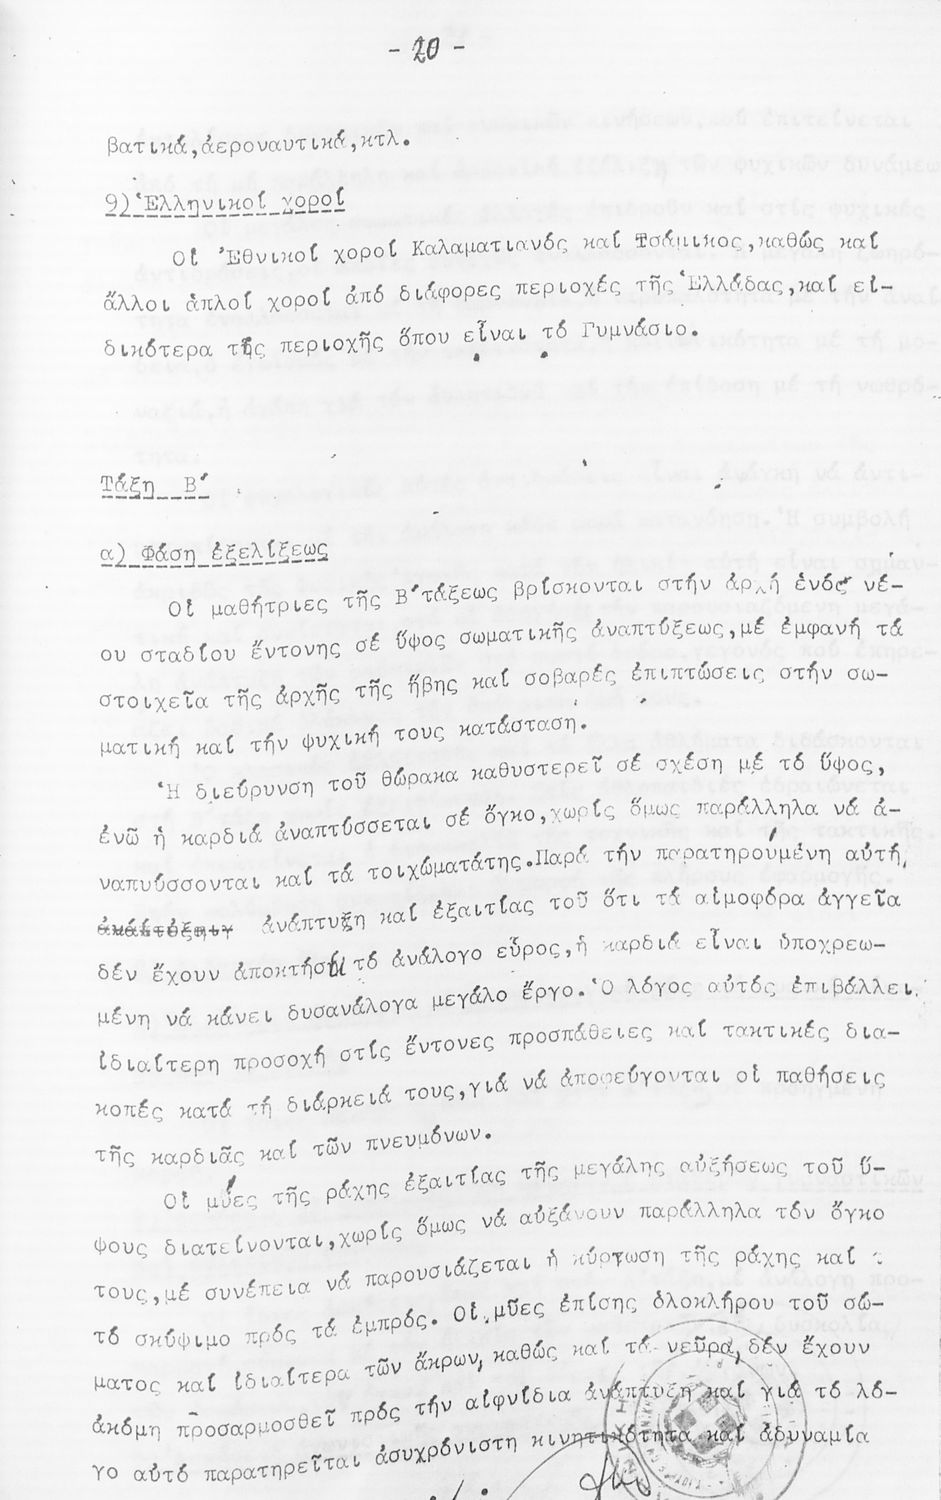 - 20 -
βατικά,ἀεροναυτικά,κτλ.
9)Ἑλληνικοί χοροί
Οἱ Ἐθνικοί χοροί Καλαματιανός καί Τσάμικος,καθώς καί
ἄλλοι ἁπλοί χοροί ἀπό διάφορες περιοχές τῆς Ἑλλάδας,καί εἰ-
δικότερα τῆς περιοχῆς ὅπου εἶναι τό Γυμνάσιο.
Τάξη Β΄
α) Φάση ἐξελίξεως
Οἱ μαθήτριες τῆς Β΄τάξεως βρίσκονται στήν ἀρχή ἑνός νέ-
ου σταδίου ἔντονης σέ ὕψος σωματικῆς ἀναπτύξεως,μέ ἐμφανή τά
στοιχεῖα τῆς ἀρχῆς τῆς ἥβης καί σοβαρές ἐπιπτώσεις στήν σω-
ματική καί τήν ψυχική τους κατάσταση.
Ἡ διεύρυνση τοῦ θώρακα καθυστερεῖ σέ σχέση μέ τό ὕψος,
ἐνῶ ἡ καρδιά ἀναπτύσσεται σέ ὄγκο,χωρίς ὅμως παράλληλα νά ἀ-
ναπυύσσονται καί τά τοιχώματάτης.Παρά τήν παρατηρουμένη αὐτή,
ἀνάπτυξη καί ἐξαιτίας τοῦ ὅτι τά αἱμοφόρα ἀγγεῖα
δέν ἔχουν ἀποκτήσει τό ἀνάλογο εὖρος,ἡ καρδιά εἶναι ὑποχρεω-
μένη νά κάνει δυσανάλογα μεγάλο ἔργο.Ὁ λόγος αὐτός ἐπιβάλλει
ἰδιαίτερη προσοχή στίς ἔντονες προσπάθειες καί τακτικές δια-
κοπές κατά τή διάρκειά τους,γιά νά ἀποφεύγονται οἱ παθήσεις
τῆς καρδιᾶς καί τῶν πνευμόνων.
Οἱ μύες τῆς ράχης ἐξαιτίας τῆς μεγάλης αὐξήσεως τοῦ ὕ-
ψους διατείνονται,χωρίς ὅμως νά αὐξάνουν παράλληλα τόν ὄγκο
τους,μέ συνέπεια νά παρουσιάζεται ἡ κύρτωση τῆς ράχης καί
τό σκύψιμο πρός τά ἐμπρός. Οἱ μῦες ἐπίσης ὁλοκλήρου τοῦ σώ-
ματος καί ἰδιαίτερα τῶν ἄκρων, καθώς καί τά νεῦρα, δέν ἔχουν
ἀκόμη προσαρμοσθεῖ πρός τήν αἰφνίδια ἀνάπτυξη καί γιά τό λό-
γο αὐτό παρατηρεῖται ἀσυχρόνιστη κινητικότητα καί ἀδυναμία